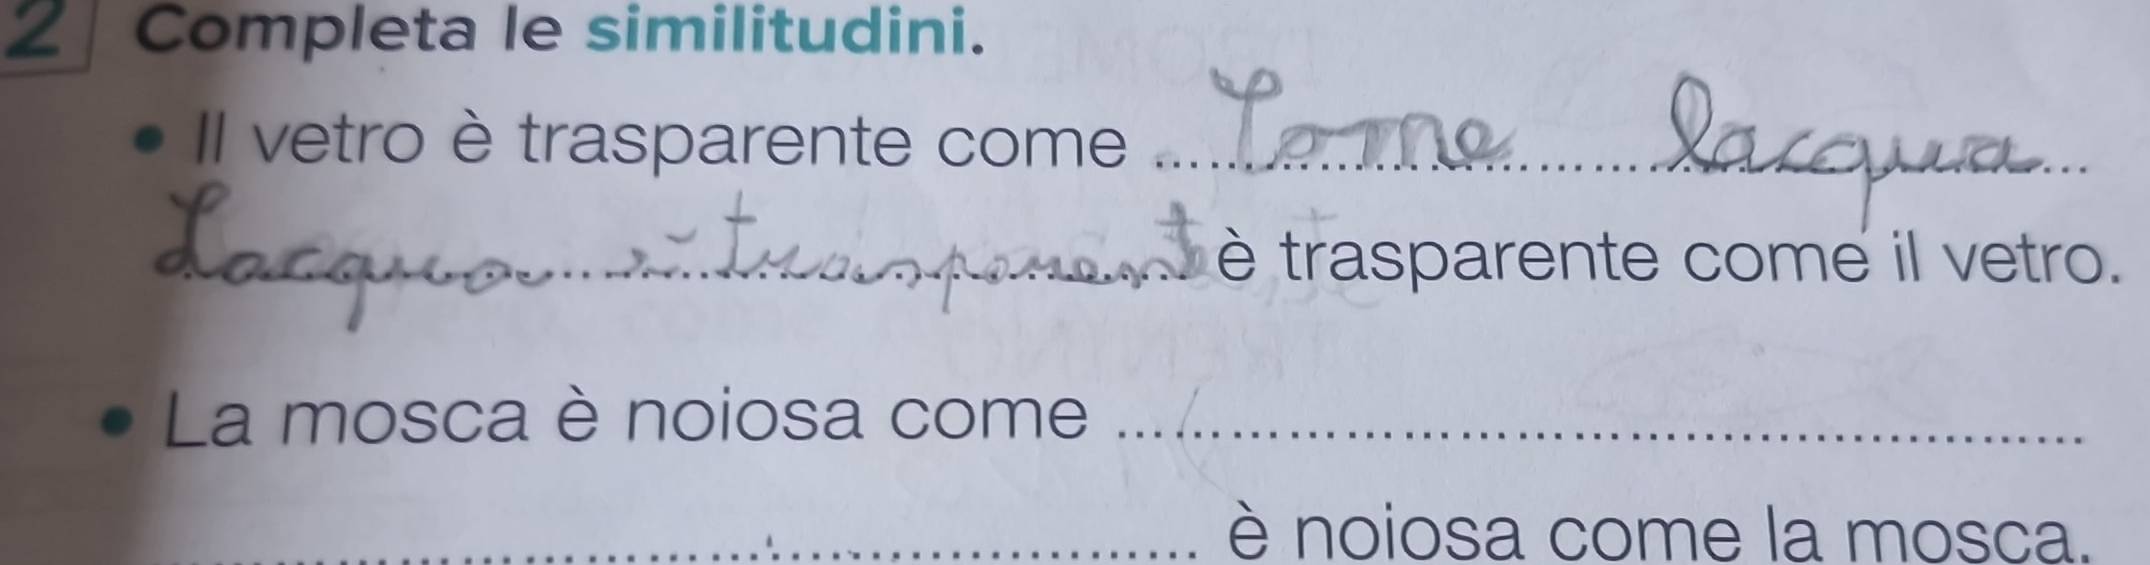 2 Completa le similitudini.
• Il vetro è trasparente come ..... Come lacqua ...
Lacqua è trasparent è trasparente come il vetro.
• La mosca è noiosa come ..........
.......... è noiosa come la mosca.